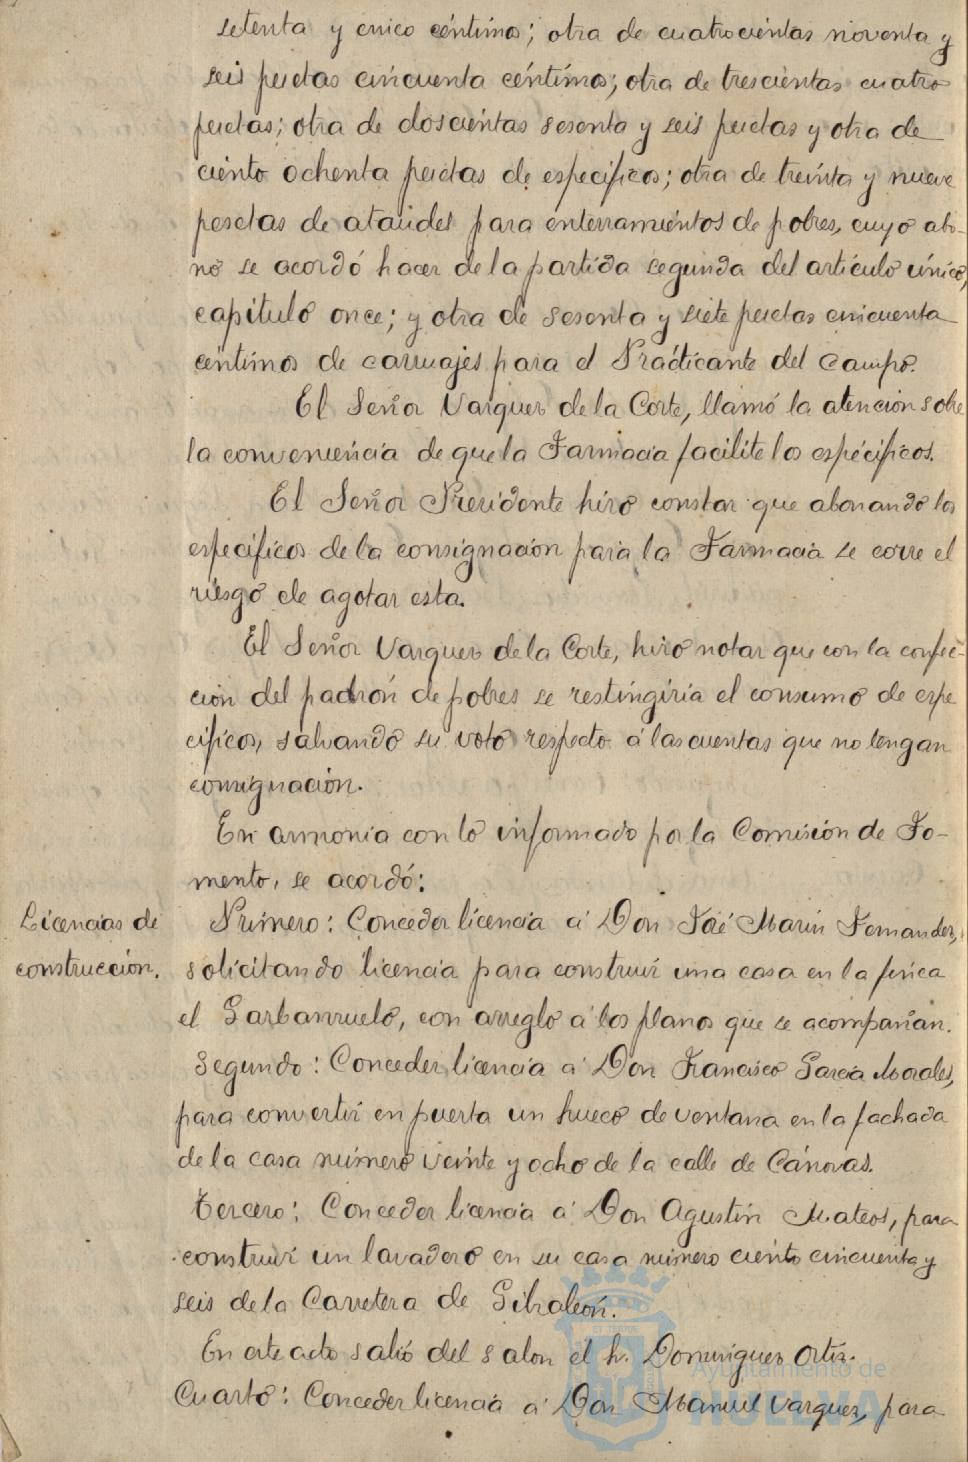 setenta y cinco céntimos; otra de cuatrocientas noventa y
seis pesetas cincuenta céntimos; otra de trescientas cuatro
pesetas; otra de doscientas sesenta y seis pesetas y otra de
ciento ochenta pesetas de específicos; otra de treinta y nueve
pesetas de ataúdes para enterramientos de pobres, cuyo abo-
no se acordó hacer de la partida segunda del artículo único,
capítulo once; y otra de sesenta y siete pesetas cincuenta
céntimos de carruajes para el Practicante del Campo.
El Señor Vazquez de la Corte, llamó la atención sobre
la conveniencia de que la Farmacia facilite los específicos.
El Señor Presidente hizo constar que abonando los
específicos de la consignación para la Farmacia se corre el
riesgo de agotar esta.
El Señor Vazquez de la Corte, hizo notar que con la confec-
ción del padrón de pobres se restingiría el consumo de espe
cíficos, salvando su voto respecto á las cuentas que no tengan
consignación.
En armonía con lo informado por la Comisión de Fo-
mento, se acordó:
Licencias de
construcción.
Primero: Conceder licencia á Don José Marín Fernandez,
solicitando licencia para construir una casa en la finca
el Garbanzuelo, con arreglo á los planos que se acompañan.
Segundo: Conceder licencia á Don Francisco García Morales,
para convertir en puerta un hueco de ventana en la fachada
de la casa número veinte y ocho de la calle de Cánovas.
Tercero: Conceder licencia á Don Agustín Mateos, para
construir un lavadero en su casa número ciento cincuenta y
seis de la Carretera de Gibraleón.
En este acto salió del salon el Sr. Dominguez Ortiz.
Cuarto: Conceder licencia á Don Manuel Vazquez, para
Ayuntamiento de
HUELVA